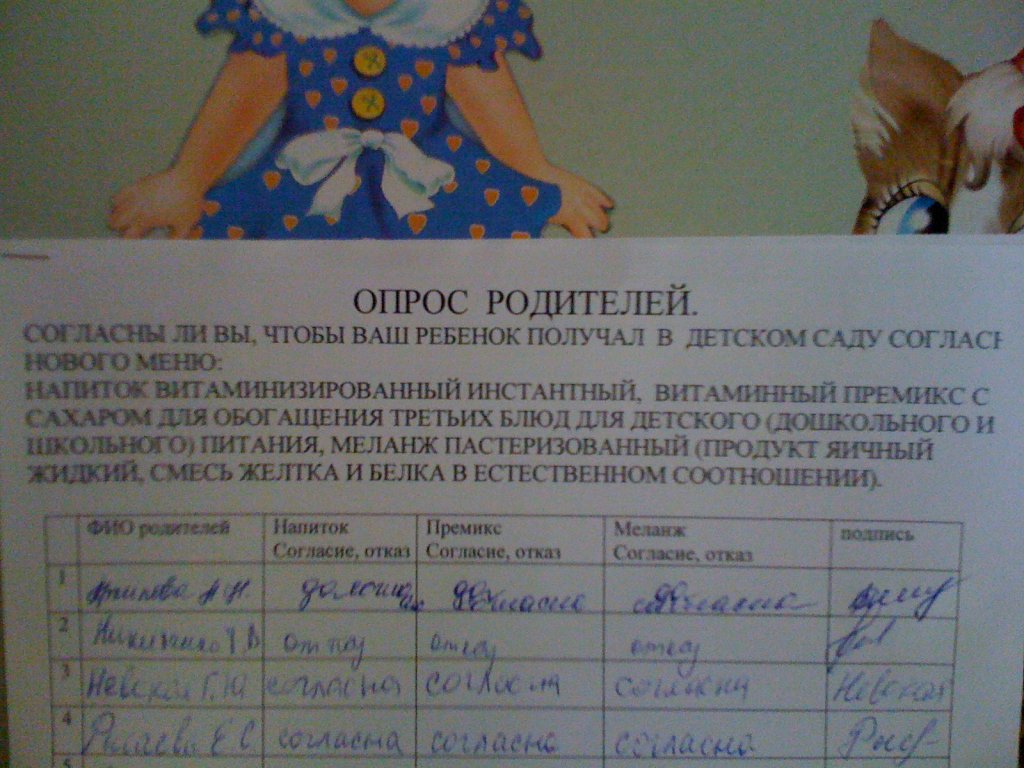 ОПРОС РОДИТЕЛЕЙ.
СОГЛАСНЫ ЛИ ВЫ, ЧТОБЫ ВАШ РЕБЕНОК ПОЛУЧАЛ В ДЕТСКОМ САДУ СОГЛАСН
НОВОГО МЕНЮ:
НАПИТОК ВИТАМИНИЗИРОВАННЫЙ ИНСТАНТНЫЙ, ВИТАМИННЫЙ ПРЕМИКС С
САХАРОМ ДЛЯ ОБОГАЩЕНИЯ ТРЕТЬИХ БЛЮД ДЛЯ ДЕТСКОГО (ДОШКОЛЬНОГО И
ШКОЛЬНОГО) ПИТАНИЯ, МЕЛАНЖ ПАСТЕРИЗОВАННЫЙ (ПРОДУКТ ЯИЧНЫЙ
ЖИДКИЙ, СМЕСЬ ЖЕЛТКА И БЕЛКА В ЕСТЕСТВЕННОМ СООТНОШЕНИИ).
ФИО родителей Напиток Премикс Меланж подпись
Согласие, отказ Согласие, отказ Согласие, отказ
1
2 отказ отказ отказ
3 Невская Г.Ю согласна согласна согласна Невская
4 Е С согласна согласна согласна
5